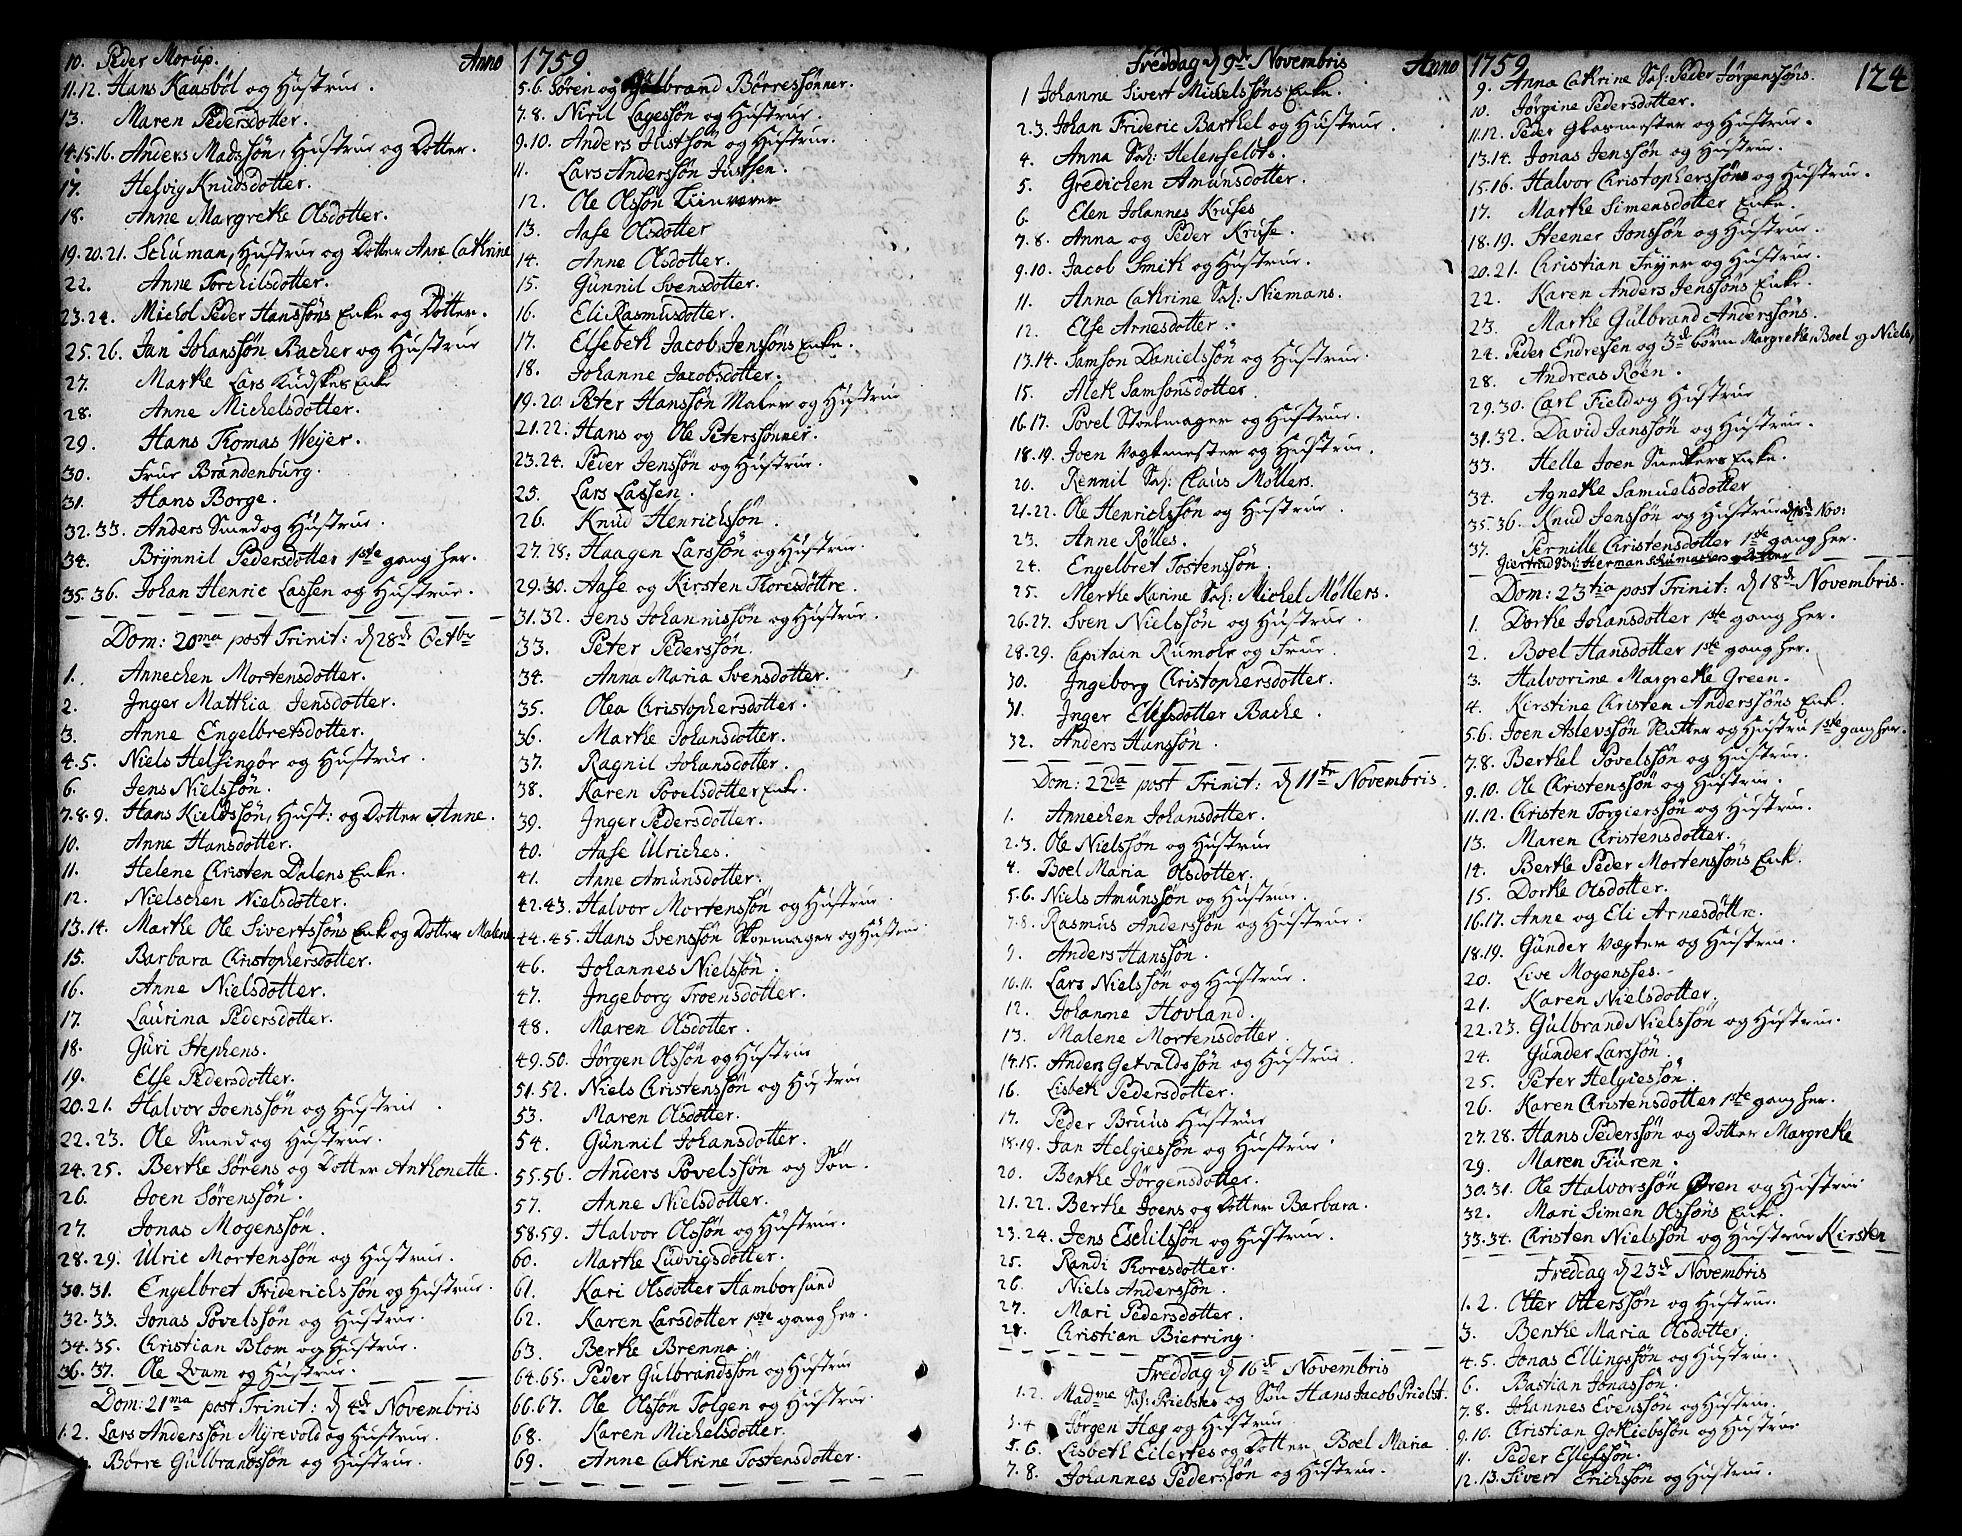 10. Peder Morup.
11.12. Hans Kaasböl og Hustrue.
13. Maren Pedersdotter.
14.15.16. Anders Madssøn, Hustrue og Dotter.
17. Helvig Knudsdotter.
18. Anne Margrethe Olsdotter.
19.20.21. Schuman, Hustrue og Dotter Anne Cathrine
22. Anne Torchilsdotter.
23.24. Michol Peder Hanssøns Enke og Dotter.
25.26. Jan Johanssøn Bacher og Hustrue
27. Marthe Lars Kudskes Enke
28. Anne Michelsdotter.
29. Hans Thomas Weyer.
30. Frue Brandenburg.
31. Hans Borge.
32.33. Anders Smed og Hustrue.
34. Brynnil Pedersdotter 1ste gang her.
35.36. Johan Henric Lassen og Hustrue.
Dom: 20ma post Trinit: d 28de Octbr
1. Annechen Mortensdotter.
2. Inger Matthia Jensdotter.
3. Anne Engelbretsdotter.
4.5. Niels Helsingør og Hustrue.
6. Jens Nielssøn.
7.8.9. Hans Kieldssøn, Hust: og Dotter Anne.
10. Anne Hansdotter.
11. Helene Christen Dalens Enke.
12. Nielschen Nielsdotter.
13.14. Marthe Ole Sivertssøns Enk og Dotter Malene
15. Barbara Christophersdotter.
16. Anne Nielsdotter.
17. Laurina Pedersdotter.
18. Guri Stephens.
19. Else Pedersdotter.
20.21. Halvor Joenssøn og Hustrue.
22.23. Ole Smed og Hustrue.
24.25. Berthe Sørens og Dotter Anthonette.
26. Joen Sørenssøn.
27. Jonas Mogenssøn.
28.29. Ulric Mortenssøn og Hustrue.
30.31. Engelbret Friderichssøn og Hustrue.
32.33. Jonas Povelssøn og Hustrue.
34.35. Christian Blom og Hustrue.
36.37. Ole Qvam og Hustrue.
Dom: 21ma post Trinit: d 4de Novembris
1.2. Lars Anderssøn Myrevold og Hustrue.
Børre Gulbrandssøn og Hustrue.
Anno 1759
5.6. Søren og Gulbrand Børressønner.
7.8. Niril Lagessøn og Hustrue.
9.10. Anders Justsøn og Hustrue.
11. Lars Anderssøn Justsen.
12. Ole Olssøn Liinvæver
13. Aase Olsdotter
14. Anne Olsdotter.
15. Gunnil Svensdotter.
16. Eli Rasmusdotter.
17. Elsebeth Jacob Jenssøns Enke.
18. Johanne Jacobsdotter.
19.20. Peter Hanssøn Maler og Hustrue
21.22. Hans og Ole Peterssønner.
23.24. Peder Jenssøn og Hustrue.
25. Lars Lassen.
26. Knud Henrichssøn.
27.28. Haagen Larssøn og Hustrue.
29.30. Aase og Kirsten Thoresdøttre.
31.32. Jens Johannissøn og Hustrue.
33. Peter Pederssøn.
34. Anna Maria Svensdotter.
35. Olea Christophersdotter.
36. Marthe Johansdotter.
37. Ragnil Johansdotter.
38. Karen Povelsdotter Enke.
39. Inger Pedersdotter.
40. Aase Ulriches.
41. Anne Amunsdotter.
42.43. Halvor Mortenssøn og Hustrue.
44.45. Hans Svenssøn Skoemager og Hustrue.
46. Johannes Nielssøn.
47. Ingeborg Troensdotter.
48. Maren Olsdotter.
49.50. Jørgen Olssøn og Hustrue
51.52. Niels Christenssøn og Hustrue
53. Maren Olsdotter.
54. Gunnil Johansdotter.
55.56. Anders Povelssøn og Søn.
57. Anne Nielsdotter.
58.59. Halvor Olssøn og Hustrue.
60. Marthe Ludvigsdotter.
61. Kari Olsdotter Hamborsund
62. Karen Larsdotter 1ste gang her.
63. Berthe Brenna.
64.65. Peder Gulbrandssøn og Hustrue
66.67. Ole Olssøn Tolgen og Hustrue
68. Karen Michelsdotter.
69. Anne Cathrine Tostensdotter.
Freddag d 9de Novembris
1 Johanne Sivert Michelssøns Enke.
2.3. Johan Frideric Barthel og Hustrue.
4. Anna Sal: Helenfeldts.
5. Gredichen Amunsdotter.
6. Elen Johannes Kruses
7.8. Anna og Peder Kruse.
9.10. Jacob Smith og Hustrue.
11. Anna Cathrine Sal: Niemans.
12. Else Arnesdotter.
13.14. Samson Danielssøn og Hustrue.
15. Aleth Samsonsdotter.
16.17. Povel Stoelmager og Hustrue.
18.19. Joen Vogtmester og Hustrue.
20. Rennil Sal: Claus Mollers.
21.22. Ole Henrichssøn og Hustrue.
23. Anne Rølles.
24. Engelbret Tostenssøn.
25. Merthe Karine Sal: Michel Møllers.
26.27. Sven Nielssøn og Hustrue.
28.29. Capitain Rumohr og Frue.
30. Ingeborg Christophersdotter.
31. Inger Elefsdotter Bache.
32. Anders Hanssøn.
Dom: 22da post Trinit: d 11te Novembris.
1. Annechen Johansdotter.
2.3. Ole Nielssøn og Hustrue
4. Boel Maria Olsdotter.
5.6. Niels Amunssøn og Hustrue.
7.8. Rasmus Anderssøn og Hustrue.
9. Anders Hanssøn.
10.11. Lars Nielssøn og Hustrue.
12. Johanne Hovland.
13. Malene Mortensdotter.
14.15. Anders Getvaldssøn og Hustrue.
16. Lisbeth Pedersdotter.
17. Peder Bruus Hustrue
18.19. Jan Helgiessøn og Hustrue.
20. Benthe Jørgensdotter.
21.22. Berthe Joens og Dotter Barbara.
23.24. Jens Eschilssøn og Hustrue.
25. Randi Thoresdotter.
26. Niels Anderssøn.
27. Mari Pedersdotter.
28. Christian Bierring.
Freddag d 16de Novembris
1.2. Madme Sal: Priebsts og Søn Hans Jacob Priebst.
3.4 Jørgen Hæg og Hustrue
5.6. Lisbeth Eilertes og Dotter Boel Maria
7.8. Johannes Pederssøn og Hustrue.
Anno 1759
124
9. Anna Cathrine Sal: Peder Jørgenssøns.
10. Jørgine Pedersdotter.
11.12. Peder Glasmester og Hustrue.
13.14. Jonas Jenssøn og Hustrue.
15.16. Halvor Christopherssøn og Hustrue.
17. Marthe Simensdotter Enke.
18.19. Steener Jonssøn og Hustrue.
20.21. Christian Feyer og Hustrue.
22. Karen Anders Jenssøns Enke.
23. Marthe Gulbrand Anderssøns.
24. Peder Endressen og 3de børn Margrethe, Boel og Niels,
28. Andreas Roen.
29.30. Carl Field og Hustrue
31.32. David Janssøn og Hustrue.
33. Helle Joen Snedkers Enke.
34. Agnethe Samuelsdotter
35.36. Knud Jenssøn og Hustrue d 18de Nov:
37. Pernille Christensdotter 1ste gang her.
Giertrud Sal: Herman Schumachers Dotter
Dom: 23tia post Trinit: d 18de Novembris.
1. Dorthe Johansdotter 1ste gang her.
2. Boel Hansdotter 1ste gang her.
3. Halvorine Margrethe Green.
4. Kirstine Christen Anderssøns Enk.
5.6. Joen Aslevssøn Slutter og Hustru 1ste gang her.
7.8. Berthel Povelssøn og Hustrue.
9.10. Ole Christenssøn og Hustrue.
11.12. Christen Torgierssøn og Hustrue.
13. Maren Christensdotter.
14. Berthe Peder Mortenssøns Enk.
15. Dorthe Olsdotter.
16.17. Anne og Eli Arnesdøttre.
18.19. Gunder Vægter og Hustrue.
20. Live Mogenses.
21. Karen Nielsdotter.
22.23. Gulbrand Nielssøn og Hustrue.
24. Gunder Larssøn.
25. Peter Helgiessøn.
26. Karen Christensdotter 1ste gang her.
27.28. Hans Pederssøn og Dotter Margrethe
29. Maren Fiuren.
30.31. Ole Halvorssøn Øren og Hustrue
32. Mari Simen Olssøns Enk.
33.34. Christen Nielssøn og Hustrue Kirsten
Freddag d 23de Novembris
1.2. Otter Otterssøn og Hustrue.
3. Benthe Maria Olsdotter.
4.5. Jonas Ellingssøn og Hustrue.
6. Bastian Jonassøn.
7.8. Johannes Evenssøn og Hustrue.
9.10. Christian Gotliebssøn og Hustrue
11. Peder Ellefssøn.
12.13. Sivert Erichssøn og Hustrue.